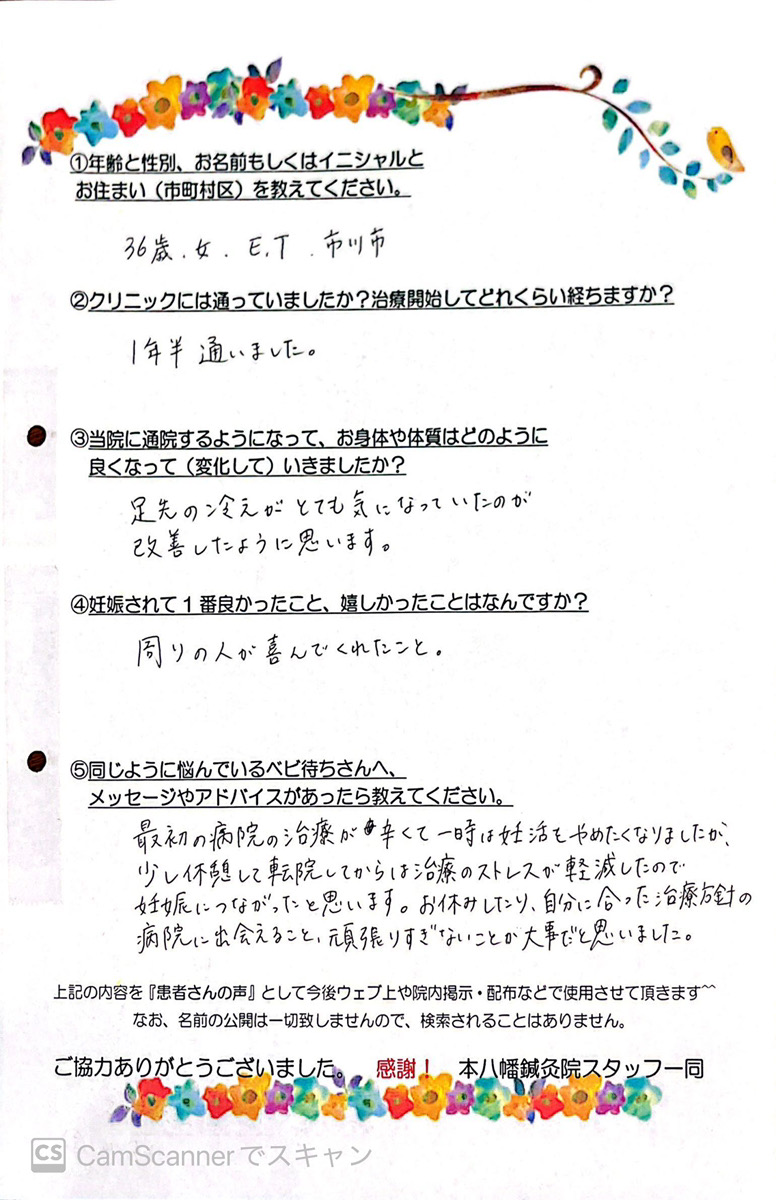 ①年齢と性別、お名前もしくはイニシャルと
お住まい（市町村区）を教えてください。
36歳．女．E.T．市川市
②クリニックには通っていましたか？治療開始してどれくらい経ちますか？
1年半 通いました。
③当院に通院するようになって、お身体や体質はどのように
良くなって（変化して）いきましたか？
足先の冷えが とても気になっていたのが
改善したように思います。
④妊娠されて１番良かったこと、嬉しかったことはなんですか？
周りの人が喜んでくれたこと。
⑤同じように悩んでいるベビ待ちさんへ、
メッセージやアドバイスがあったら教えてください。
最初の病院の治療が辛くて一時は妊活をやめたくなりましたが、
少し休憩して転院してからは治療のストレスが軽減したので
妊娠につながったと思います。お休みしたり、自分に合った治療方針の
病院に出会えること、頑張りすぎないことが大事だと思いました。
上記の内容を『患者さんの声』として今後ウェブ上や院内掲示・配布などで使用させて頂きます^^
なお、名前の公開は一切致しませんので、検索されることはありません。
ご協力ありがとうございました。 感謝！ 本八幡鍼灸院スタッフ一同
CS CamScannerでスキャン